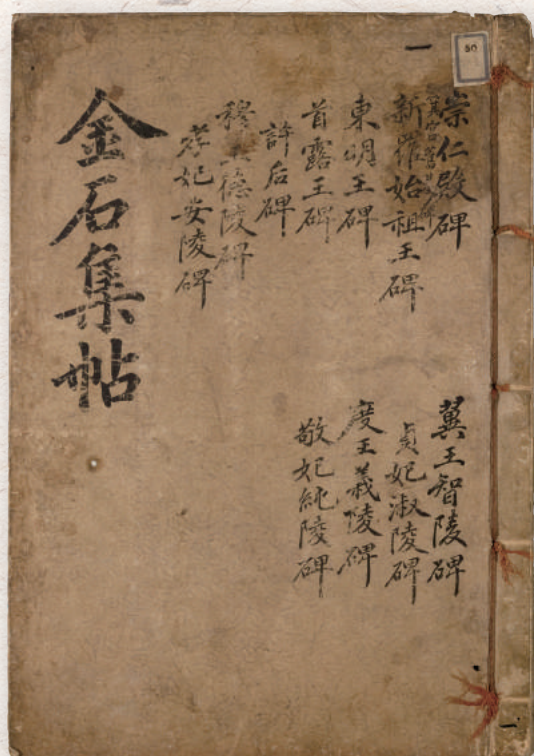 一
50
崇仁殿碑
新羅始祖王碑
東明王碑
首露王碑
許后碑
穆王德陵碑
孝妃安陵碑
翼王智陵碑
貞妃淑陵碑
度王義陵碑
敬妃純陵碑
金石集帖
一